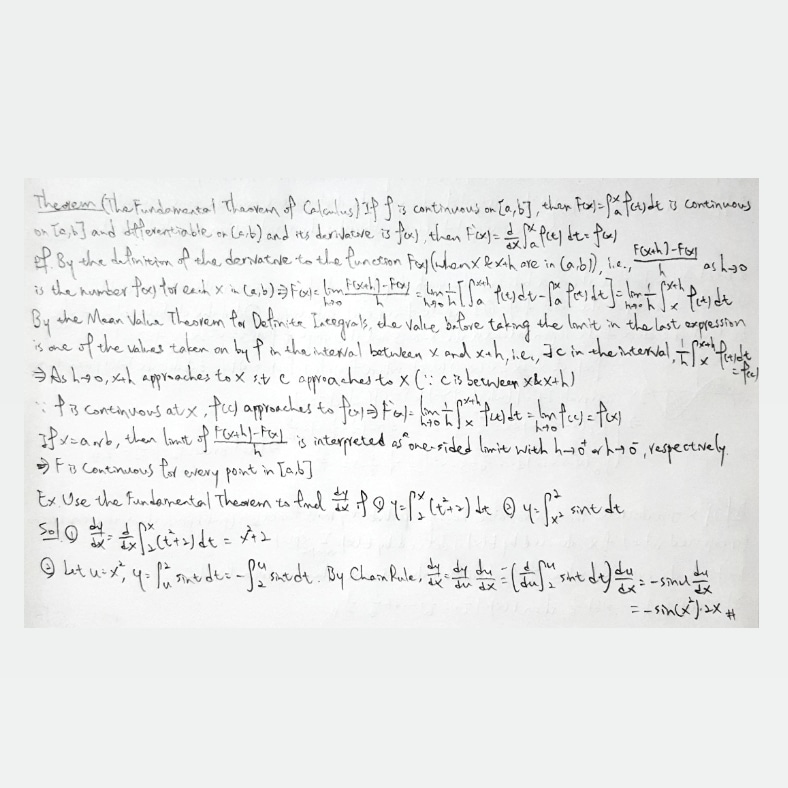 Theorem (The Fundamental Theorem of Calculus) If f is continuous on [a,b], then F(x)=∫ₐˣ f(t)dt is continuous
on [a,b] and differentiable on (a,b) and its derivative is f(x), then F'(x)= d/dx ∫ₐˣ f(t) dt = f(x)
pf. By the definition of the derivative to the function F(x) (when x & x+h are in (a,b)), i.e., (F(x+h)-F(x))/h as h→0
is the number f(x) for each x in (a,b) ⇒ F'(x)= lim_{h→0} (F(x+h)-F(x))/h = lim_{h→0} 1/h [∫ₐ^{x+h} f(t)dt - ∫ₐˣ f(t)dt] = lim_{h→0} 1/h ∫ₓ^{x+h} f(t) dt
By the Mean Value Theorem for Definite Integrals, the value before taking the limit in the last expression
is one of the values taken on by f in the interval between x and x+h, i.e., ∃c in the interval, 1/h ∫ₓ^{x+h} f(t)dt = f(c)
⇒ As h→0, x+h approaches to x s.t c approaches to x (∵ c is between x & x+h)
∵ f is continuous at x, f(c) approaches to f(x) ⇒ F'(x)= lim_{h→0} 1/h ∫ₓ^{x+h} f(t)dt = lim_{h→0} f(c) = f(x)
If x=a or b, then limit of (F(x+h)-F(x))/h is interpreted as a one-sided limit with h→0⁺ or h→0⁻, respectively.
⇒ F is continuous for every point in [a,b]
Ex. Use the Fundamental Theorem to find dy/dx if ① y=∫₂ˣ (t²+2) dt ② y=∫_{x²}² sint dt
Sol ① dy/dx = d/dx ∫₂ˣ (t²+2) dt = x²+2
② Let u=x², y=∫ᵤ² sint dt = -∫₂ᵘ sint dt. By Chain Rule, dy/dx = dy/du du/dx = (- d/du ∫₂ᵘ sint dt) du/dx = -sinu du/dx
= -sin(x²)·2x #